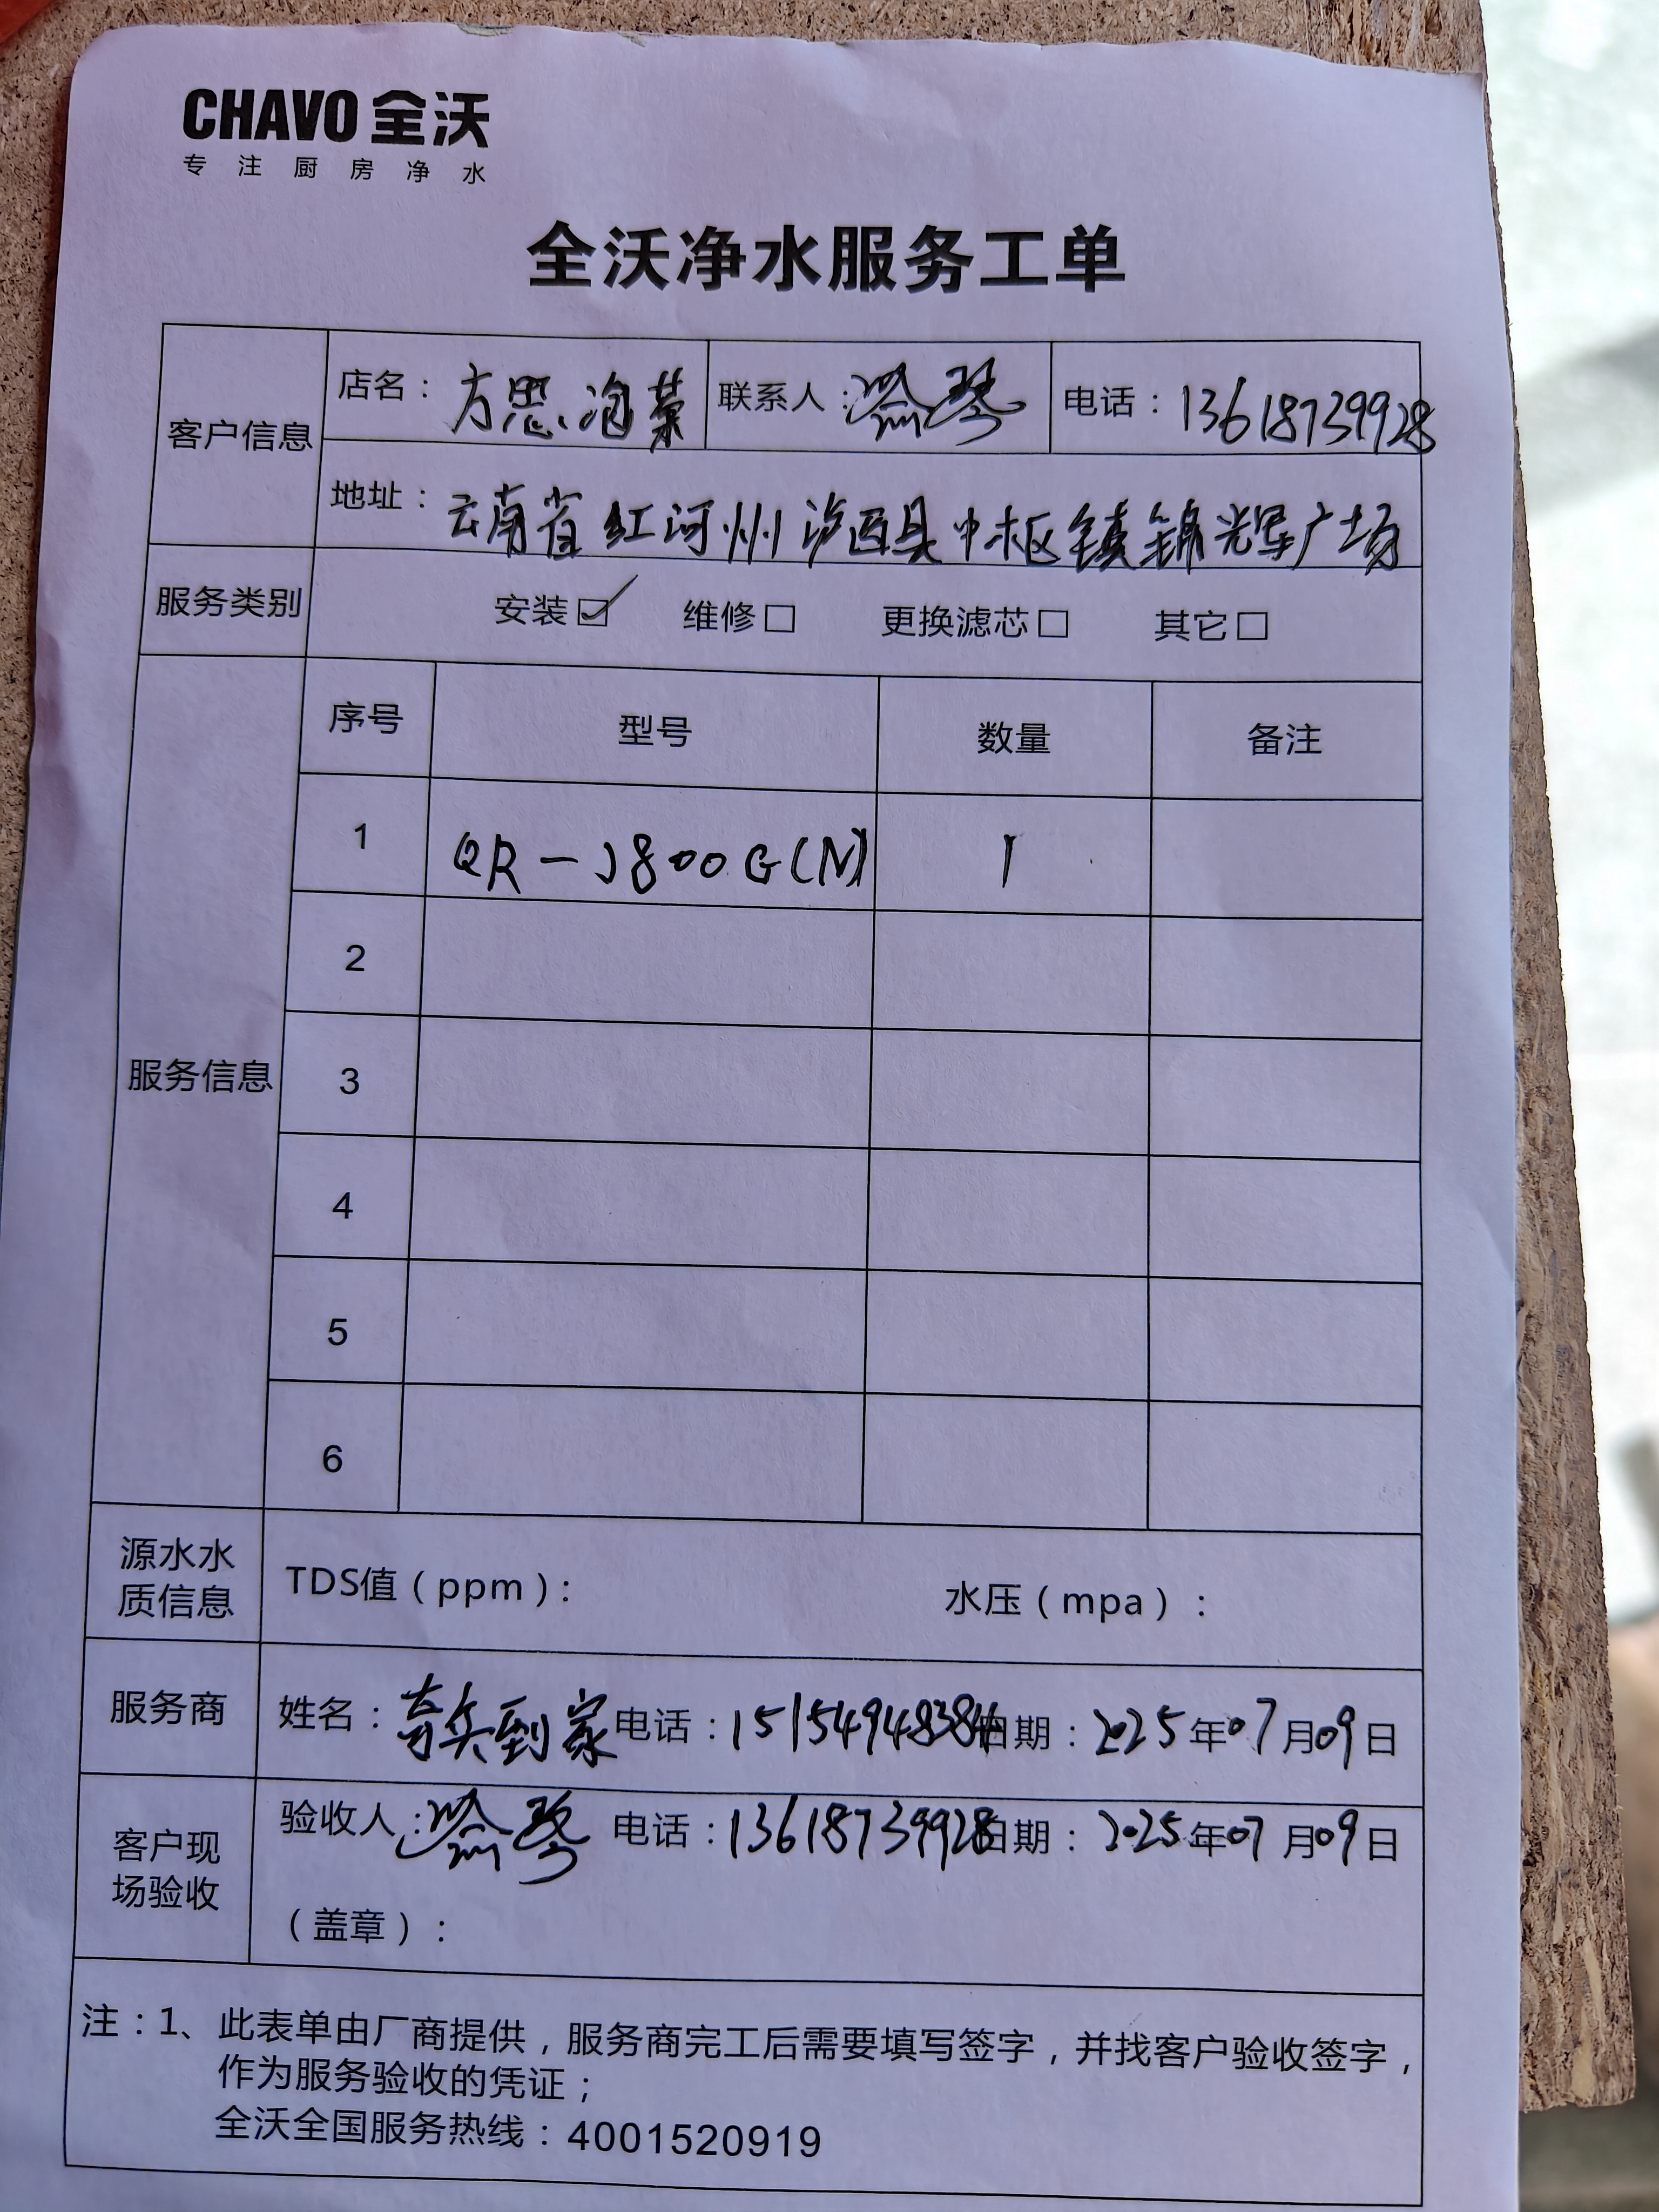 CHAVO 全沃
专注厨房净水
全沃净水服务工单
客户信息
店名：方思泡菜 联系人： 电话：13618739928
地址：云南省红河州泸西县中枢镇锦辉广场
服务类别 安装☑ 维修□ 更换滤芯□ 其它□
服务信息
序号 型号 数量 备注
1 QR-J800G(N) 1
2
3
4
5
6
源水水质信息 TDS值（ppm）： 水压（mpa）：
服务商 姓名：奇兵到家 电话：15154948384 日期：2025年07月09日
客户现场验收 验收人： 电话：13618739928 日期：2025年07月09日
（盖章）：
注：1、此表单由厂商提供，服务商完工后需要填写签字，并找客户验收签字，
作为服务验收的凭证；
全沃全国服务热线：4001520919